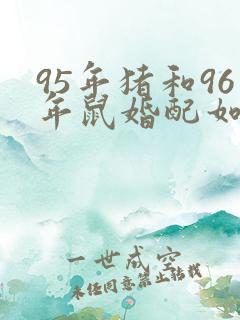 95年猪和96
年鼠婚配如
一世成空
未经同意禁止转载